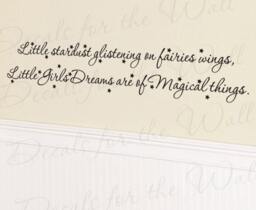 Little stardust glistening on fairies wings,
Little Girls Dreams are of Magical things.
Decals for the Wall